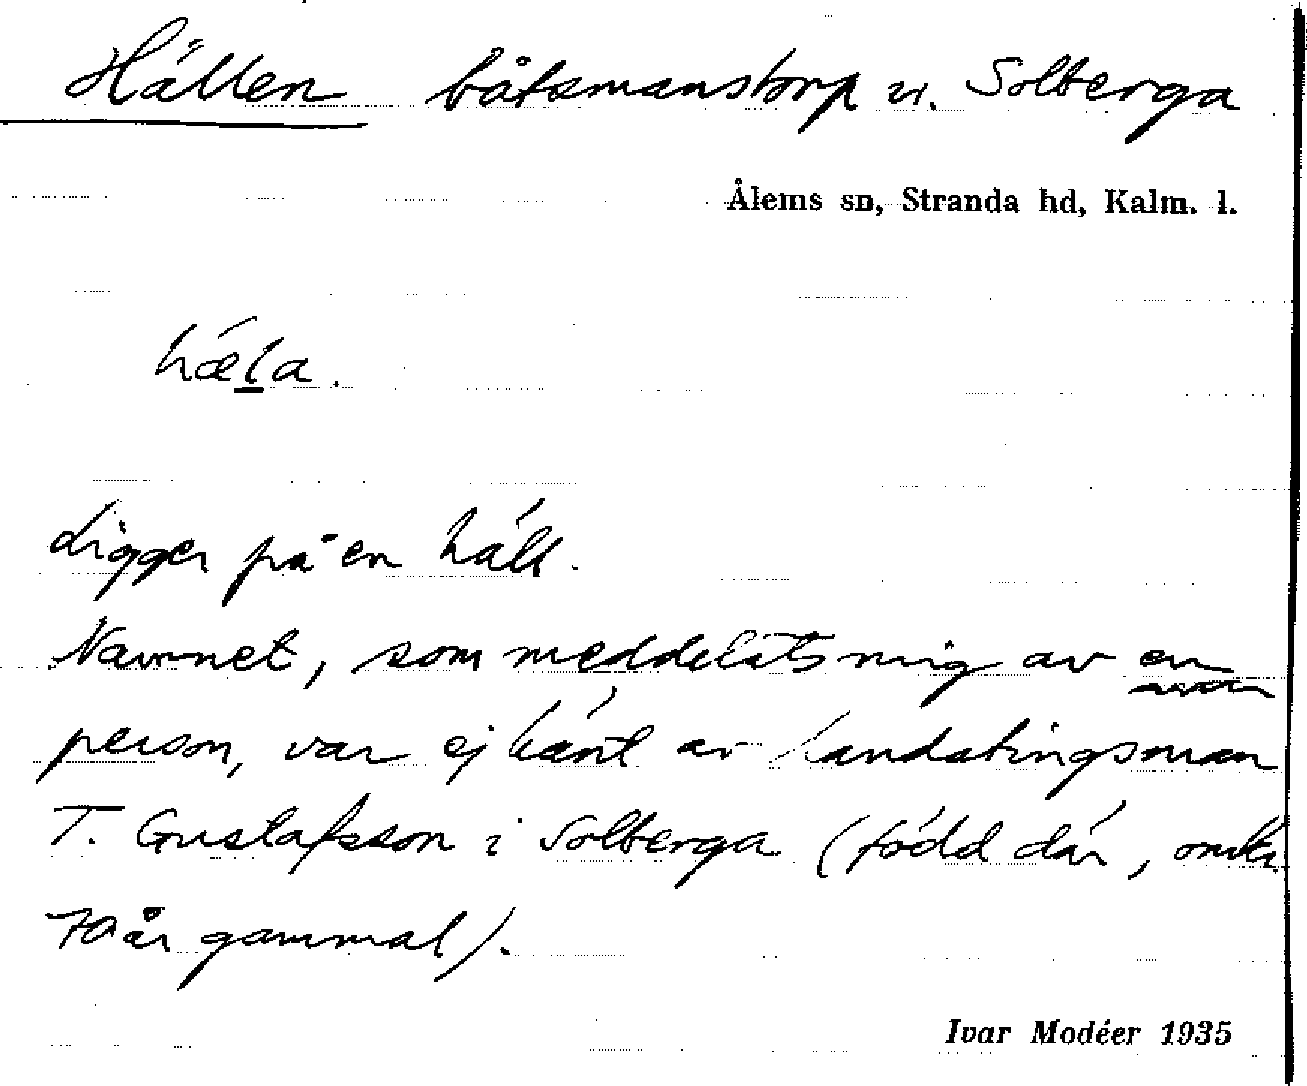 Hällen båtsmanstorp u. Solberga
Ålems sn, Stranda hd, Kalm. l.
hæla.
Ligger på en häll.
Namnet, som meddelats mig av en
annan
person, var ej känt av landstingsman
T. Gustafsson i Solberga (född där, omkr.
70 år gammal).
Ivar Modéer 1935